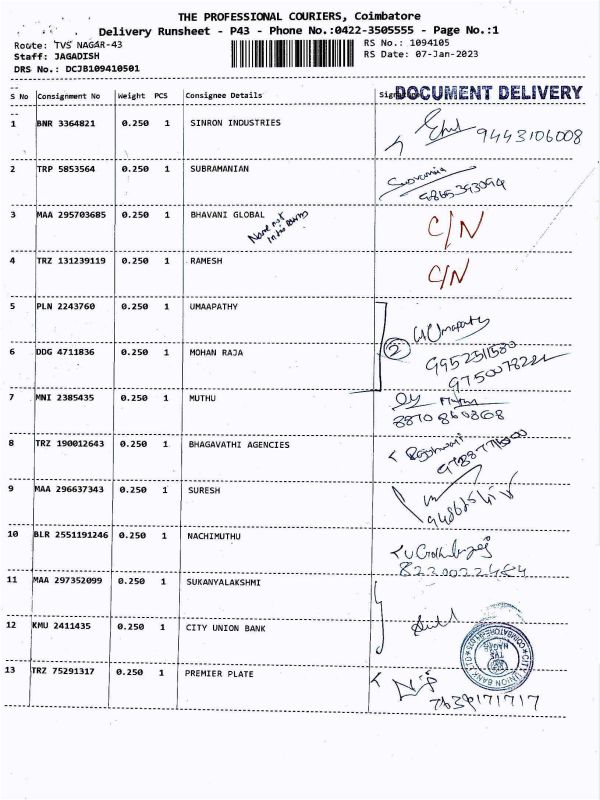 THE PROFESSIONAL COURIERS, Coimbatore
Delivery Runsheet - P43 - Phone No.:0422-3505555 - Page No.:1
Route: TVS NAGAR-43 RS No.: 1094105
Staff: JAGADISH RS Date: 07-Jan-2023
DRS No.: DCJB109410501
S No Consignment No Weight PCS Consignee Details DOCUMENT DELIVERY
1 BNR 3364821 0.250 1 SINRON INDUSTRIES 9443106008
2 TRP 5853564 0.250 1 SUBRAMANIAN
3 MAA 295703685 0.250 1 BHAVANI GLOBAL Name not C/N
4 TRZ 131239119 0.250 1 RAMESH C/N
5 PLN 2243760 0.250 1 UMAAPATHY
6 DDG 4711836 0.250 1 MOHAN RAJA 2
7 MNI 2385435 0.250 1 MUTHU
8 TRZ 190012643 0.250 1 BHAGAVATHI AGENCIES
9 MAA 296637343 0.250 1 SURESH
10 BLR 2551191246 0.250 1 NACHIMUTHU
11 MAA 297352099 0.250 1 SUKANYALAKSHMI
12 KMU 2411435 0.250 1 CITY UNION BANK
CITY UNION BANK
TVS NAGAR
13 TRZ 75291317 0.250 1 PREMIER PLATE
7639171717